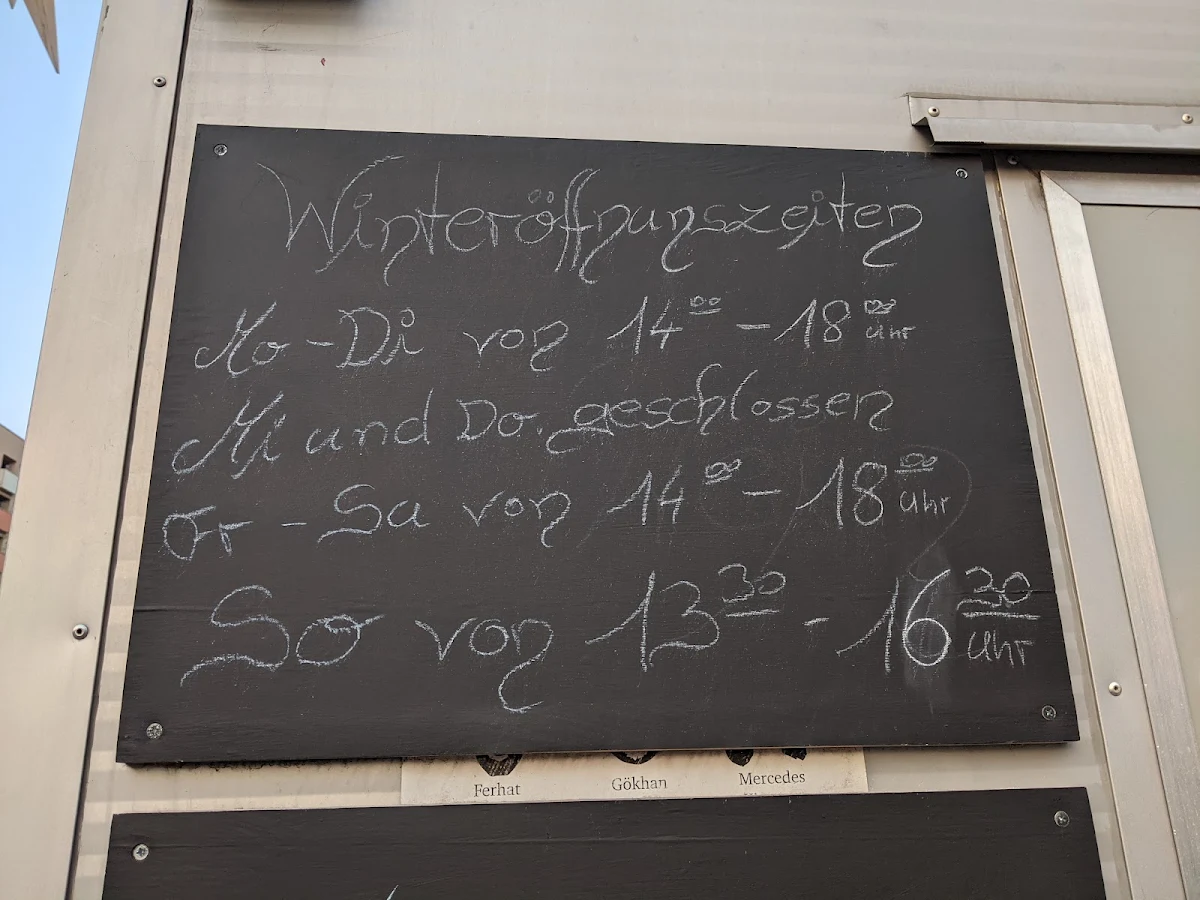 Winteröffnunszeiten
Mo - Di von 14 00 - 18 00 Uhr
Mi und Do. geschlossen
Fr - Sa von 14 00 - 18 00 Uhr
So von 13 30 - 16 30 Uhr
Ferhat Gökhan Mercedes